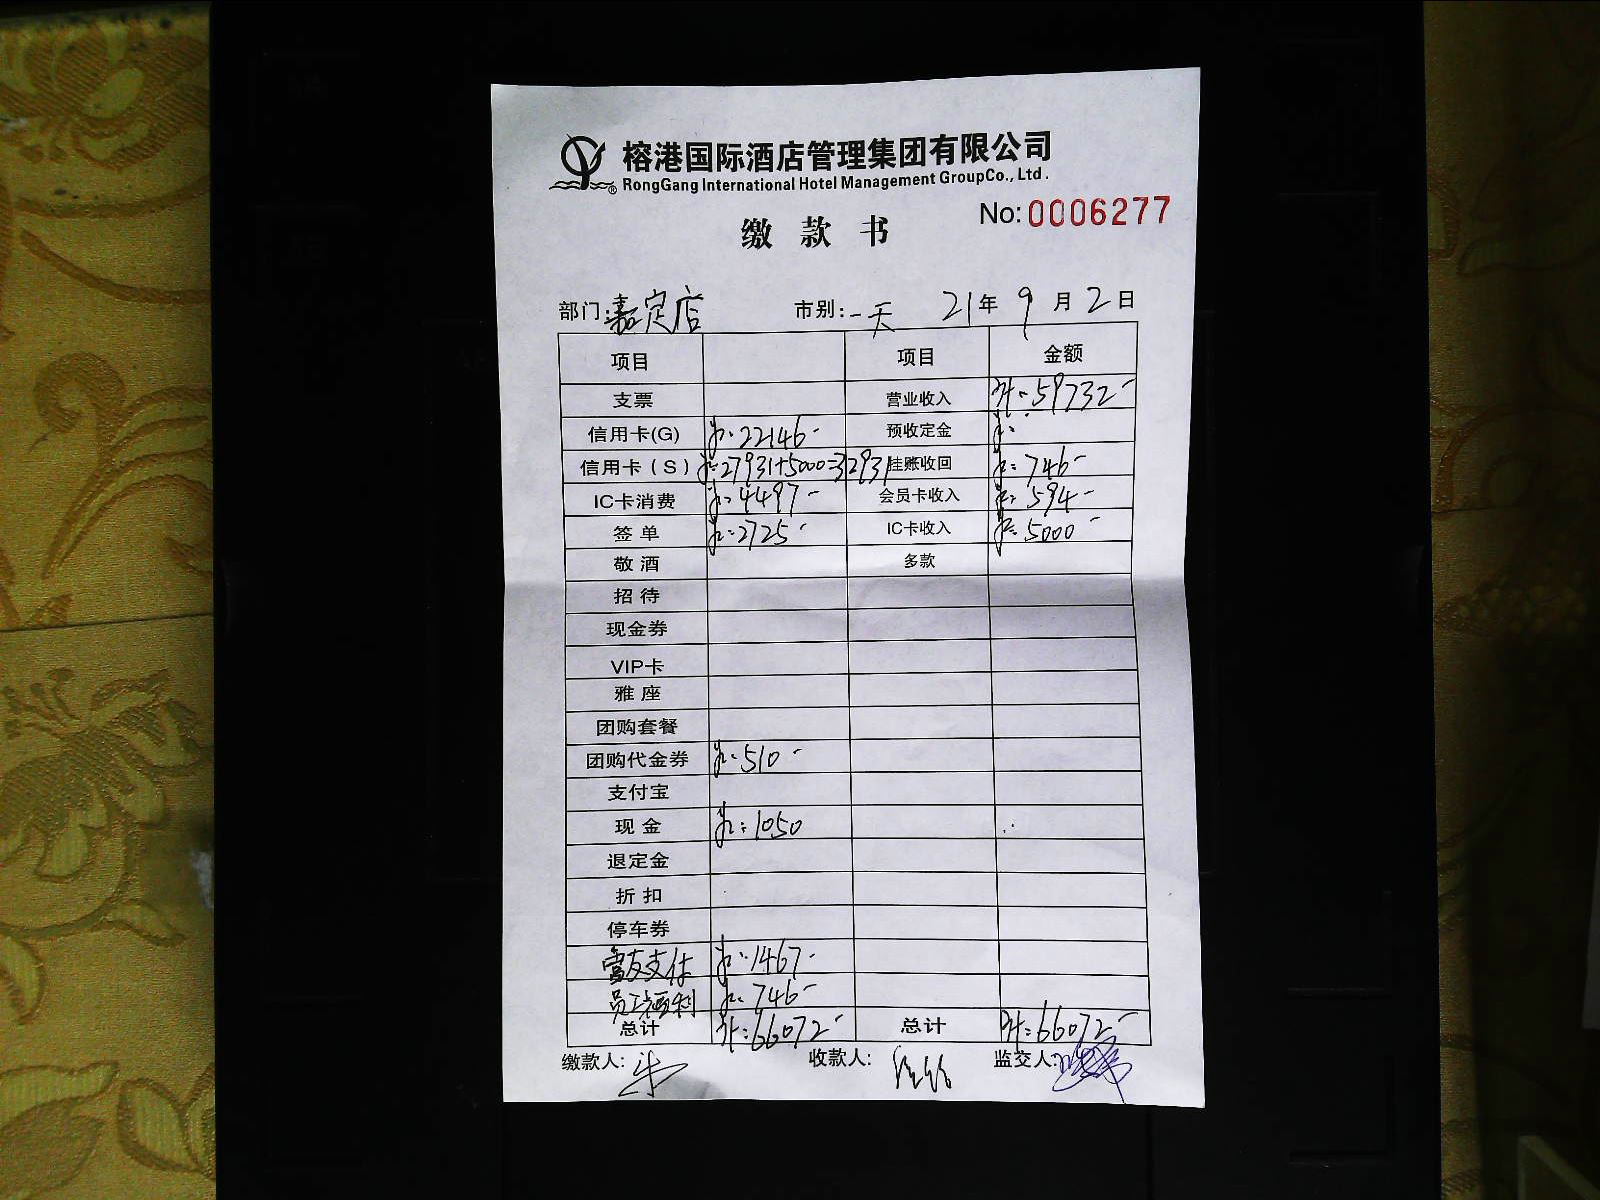 榕港国际酒店管理集团有限公司
RongGang International Hotel Management GroupCo., Ltd.
No:0006277
缴款书
部门:嘉定店 市别:一天 21年9月2日
项目 项目 金额
支票 营业收入 59732-
信用卡(G) 22146- 预收定金
信用卡(S) 27931+5000=32931 挂账收回 746-
IC卡消费 4497- 会员卡收入 594-
签单 2725- IC卡收入 5000-
敬酒 多款
招待
现金券
VIP卡
雅座
团购套餐
团购代金券 510-
支付宝
现金 1050
退定金
折扣
停车券
支付 1467-
员工福利 746-
总计 66072- 总计 66072-
缴款人: 收款人: 监交人: